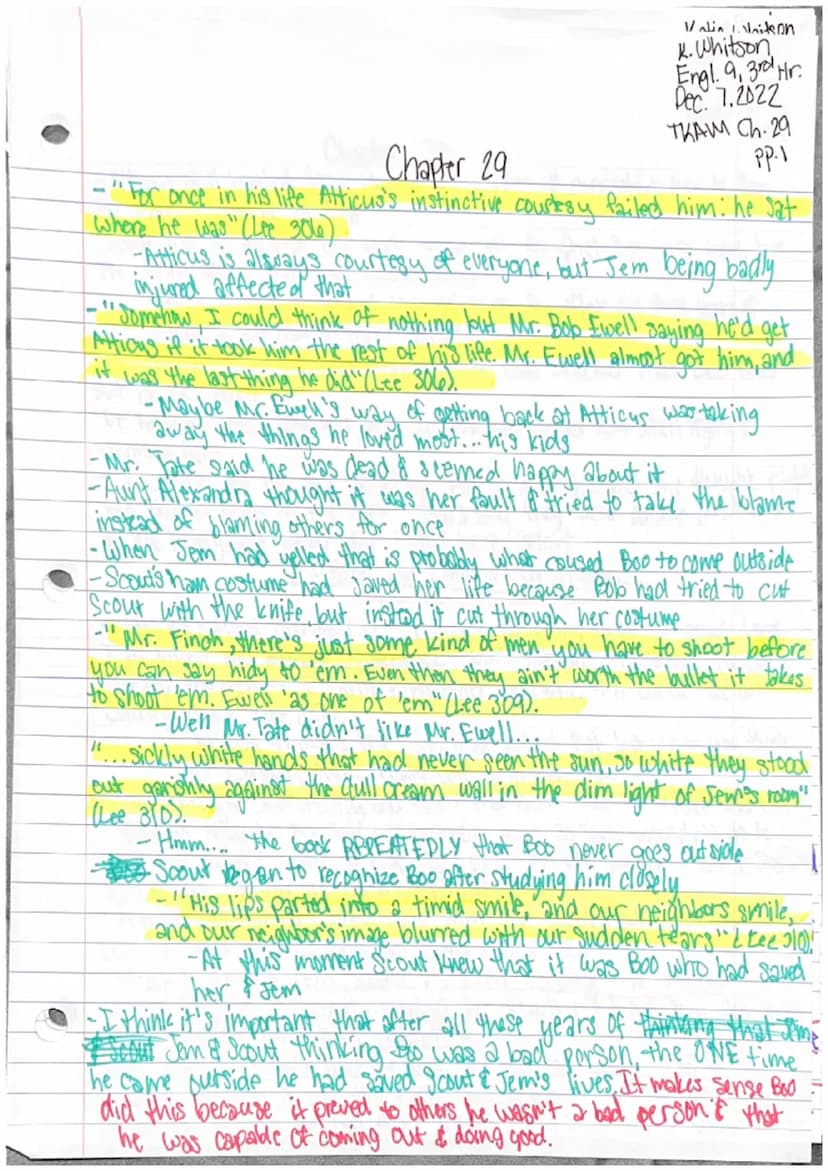 K. Whitson
Engl. 9, 3rd Hr.
Dec. 7, 2022
TKAM Ch. 29
pp. 1
Chapter 29
- "For once in his life Atticus's instinctive courtesy failed him: he sat
where he was" (Lee 306)
- Atticus is always courtesy of everyone, but Jem being badly
injured affected that
- "Somehow, I could think of nothing but Mr. Bob Ewell saying he'd get
Atticus if it took him the rest of his life. Mr. Ewell almost got him, and
it was the last thing he did" (Lee 306).
- Maybe Mr. Ewell's way of getting back at Atticus was taking
away the things he loved most... his kids
- Mr. Tate said he was dead & seemed happy about it
- Aunt Alexandra thought it was her fault & tried to take the blame
instead of blaming others for once
- When Jem had yelled that is probably what caused Boo to come outside
- Scout's ham costume had saved her life because Bob had tried to cut
Scout with the knife, but instad it cut through her costume
- "Mr. Finch, there's just some kind of men you have to shoot before
you can say hidy to 'em. Even then they ain't worth the bullet it takes
to shoot 'em. Ewell 'as one of 'em" (Lee 309).
- Well Mr. Tate didn't like Mr. Ewell...
"...sickly white hands that had never seen the sun, so white they stood
out garishly against the dull cream wall in the dim light of Jem's room"
(Lee 310).
- Hmm.... the book REPEATEDLY that Boo never goes outside
- Scout began to recognize Boo after studying him closely
- "His lips parted into a timid smile, and our neighbors smile,
and our neighbor's image blurred with our sudden tears" (Lee 310)
- At this moment Scout knew that it was Boo who had saved
her & Jem
- I think it's important that after all these years of thinking that Jem
& Scout Jem & Scout thinking Boo was a bad person, the ONE time
he came outside he had saved Scout & Jem's lives. It makes sense Boo
did this because it proved to others he wasn't a bad person & that
he was capable of coming out & doing good.